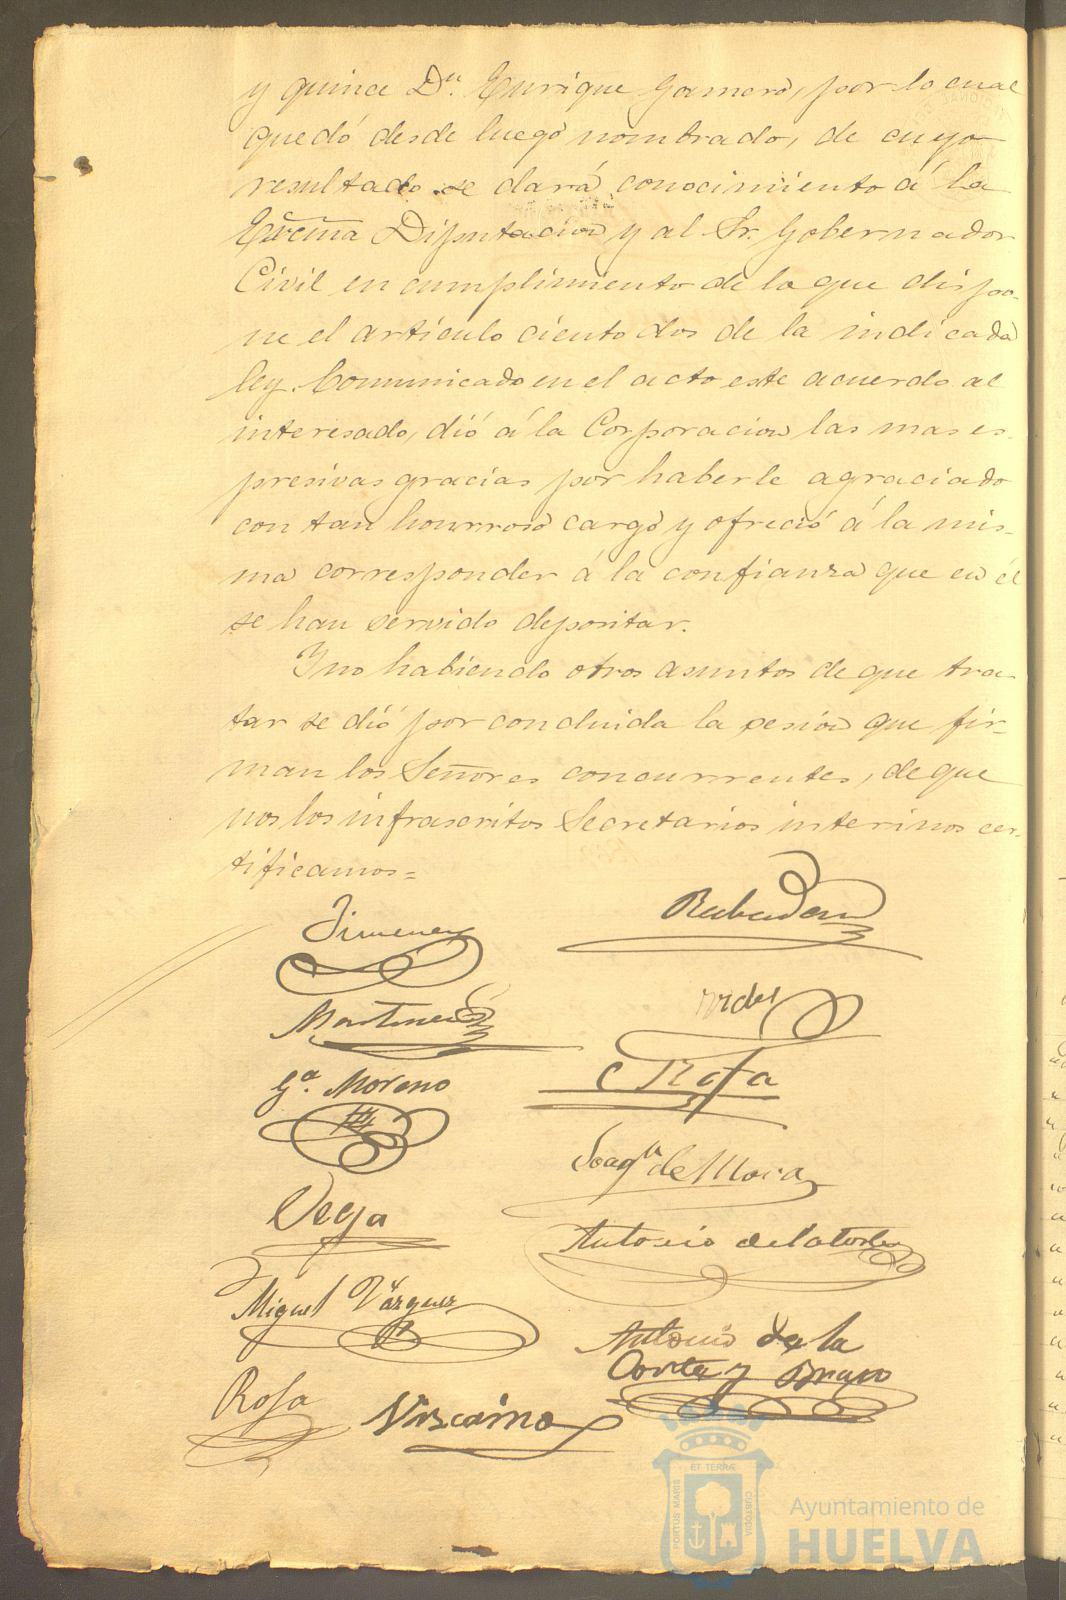 y quince Dn. Enrique Gamero, por lo cual
quedó desde luego nombrado, de cuyo
resultado se dará conocimiento á la
Excma Diputacion y al Sr. Gobernador
Civil en cumplimiento de lo que dispo-
ne el artículo ciento dos de la indicada
ley. Comunicado en el acto este acuerdo al
interesado, dió á la Corporacion las mas es-
presivas gracias por haberle agraciado
con tan honrroso cargo y ofreció á la mis-
ma corresponder á la confianza que en él
se han servido depositar.
Y no habiendo otros asuntos de que tra-
tar se dió por concluida la sesion que fir-
man los Señores concurrentes, de que
nos los infrascritos Secretarios interinos cer-
tificamos=
Jimenez
Martinez
Ga. Moreno
C Rofa
Joaqn de Mora
Vega
Antonio de la Corte
Miguel Vazquez
Antonio de la
Corte y Bravo
Rofa
Vizcaino
PORTUS MARIS
ET TERRÆ
CUSTODIA
Ayuntamiento de
HUELVA